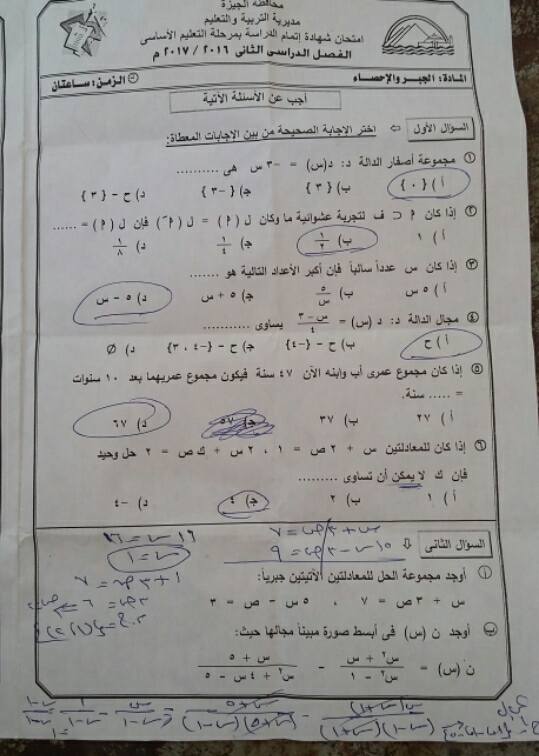 محافظة الجيزة
مديرية التربية والتعليم
امتحان شهادة إتمام الدراسة بمرحلة التعليم الأساسى
الفصل الدراسى الثانى ٢٠١٦ / ٢٠١٧ م
المادة: الجبر والإحصاء
الزمن: ساعتان
أجب عن الأسئلة الآتية
السؤال الأول ⇐ اختر الإجابة الصحيحة من بين الإجابات المعطاة:
١ مجموعة أصفار الدالة د: د(س) = -٣ س هى ..........
أ ) {٠} ب) {٣} ج) {-٣} د) ح - {٣}
٢ إذا كان ٢ ⊂ ف لتجربة عشوائية ما وكان ل (٢) = ل (٢َ) فإن ل (٢) = ......
أ ) ١ ب) ١/٢ ج) ١/٤ د) ١/٨
٣ إذا كان س عدداً سالباً فإن أكبر الأعداد التالية هو .......
أ ) ٥ س ب) ٥/س ج) ٥ + س د) ٥ - س
٤ مجال الدالة د: د (س) = (س - ٣)/٤ يساوى ..........
أ ) ح ب) ح - {-٤} ج) ح - {-٤ ، ٣} د) Ø
٥ إذا كان مجموع عمرى أب وابنه الآن ٤٧ سنة فيكون مجموع عمريهما بعد ١٠ سنوات
= ..... سنة.
أ ) ٢٧ ب) ٣٧ ج) ٥٧ د) ٦٧
٦ إذا كان للمعادلتين س + ٢ ص = ١ ، ٢ س + ك ص = ٢ حل وحيد
فإن ك لا يمكن أن تساوى ..........
أ ) ١ ب) ٢ ج) ٤ د) -٤
السؤال الثانى ⇓
س + ٣ص = ٧
١٥س - ٣ص = ٩
١٦س = ١٦
س = ١
أ أوجد مجموعة الحل للمعادلتين الآتيتين جبرياً:
١ + ٣ص = ٧
س + ٣ ص = ٧ ، ٥ س - ص = ٣
٣ص = ٦
ب أوجد ن (س) فى أبسط صورة مبيناً مجالها حيث:
ن (س) = (س٢ + س)/(س٢ - ١) - (س + ٥)/(س٢ + ٤ س - ٥)